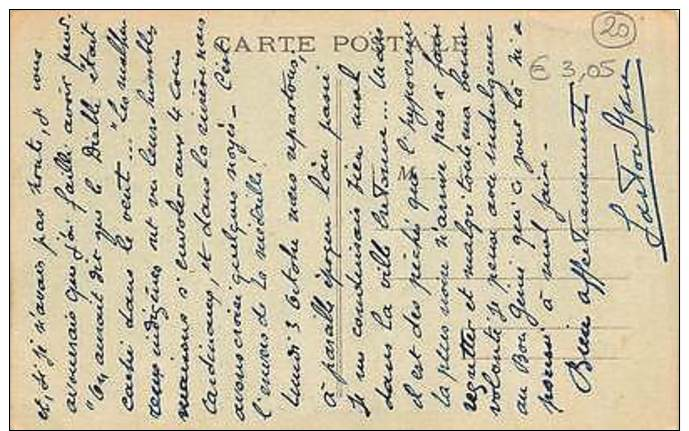 CARTE POSTALE
20
€ 3,05
et, si je n'avais pas honte, je vous
avouerais que j'ai failli avoir peur.
"On aurait dit que le Diable était
caché dans le vent... " Les malheu
reux indigènes ont vu leurs humbles
maisons s'envoler aux 4 coins
cardinaux, et dans la rivière nous
avons croisé quelques noyés - C'est
l'envers de la médaille!
Lundi 3 Octobre nous repartons,
à pareille époque l'an passé
je me conduisais bien mal
dans la ville lointaine... Mais
il est des péchés que l'hypocrisie
la plus noire n'arrive pas à faire
regretter et malgré toute ma bonne
volonté je pense avec indulgence
au Bon Génie qui ce jour là m'a
poussé à mal faire -
Bien affectueusement